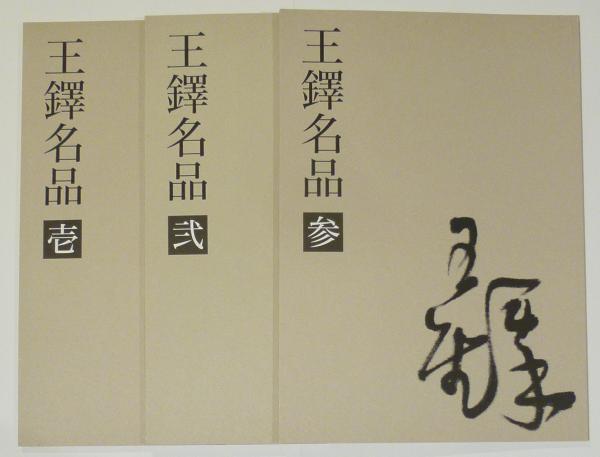 王鐸名品 壱
王鐸名品 弐
王鐸名品 参
王鐸